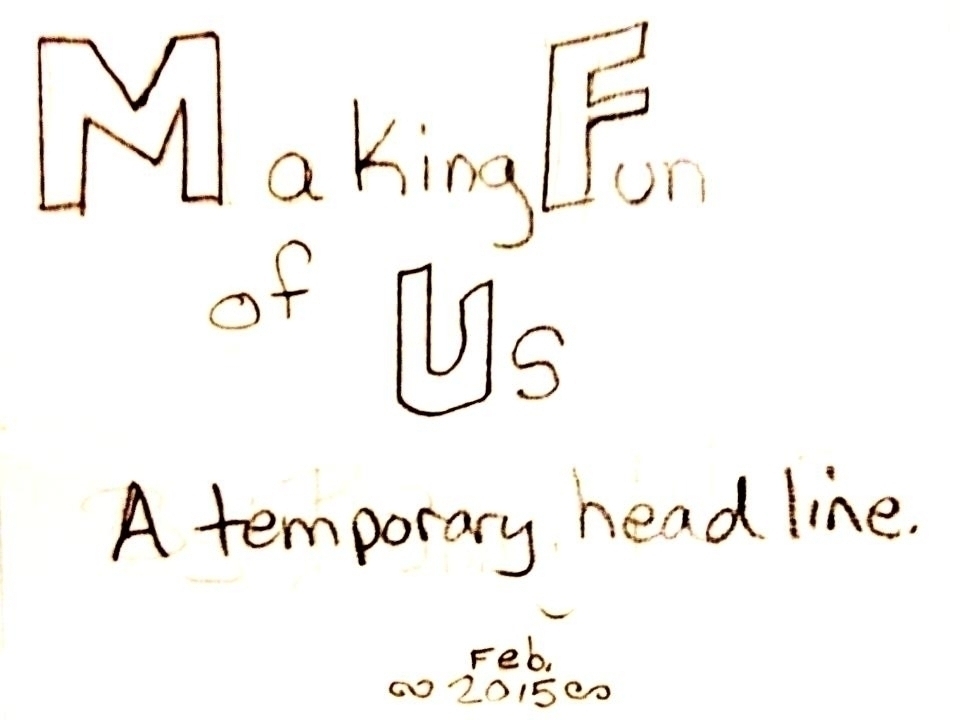 Making Fun
of Us
A temporary headline.
Feb.
∞ 2015 ∞